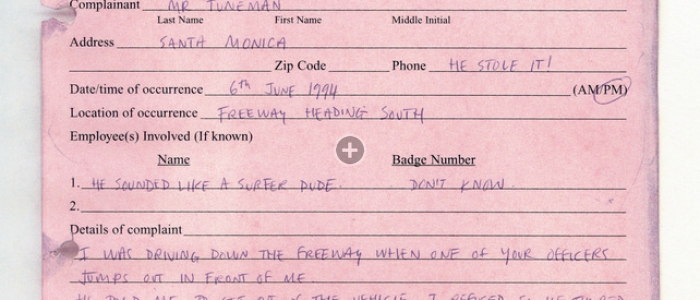 Complainant MR TUNEMAN
Last Name First Name Middle Initial
Address SANTA MONICA
Zip Code Phone HE STOLE IT!
Date/time of occurrence 6th JUNE 1994 (AM/PM)
Location of occurrence FREEWAY HEADING SOUTH
Employee(s) Involved (If known)
Name Badge Number
1. HE SOUNDED LIKE A SURFER DUDE. DON'T KNOW
2.
Details of complaint
I WAS DRIVING DOWN THE FREEWAY WHEN ONE OF YOUR OFFICERS
JUMPS OUT IN FRONT OF ME
HE TOLD ME TO GET OUT OF THE VEHICLE I REFUSED SO HE